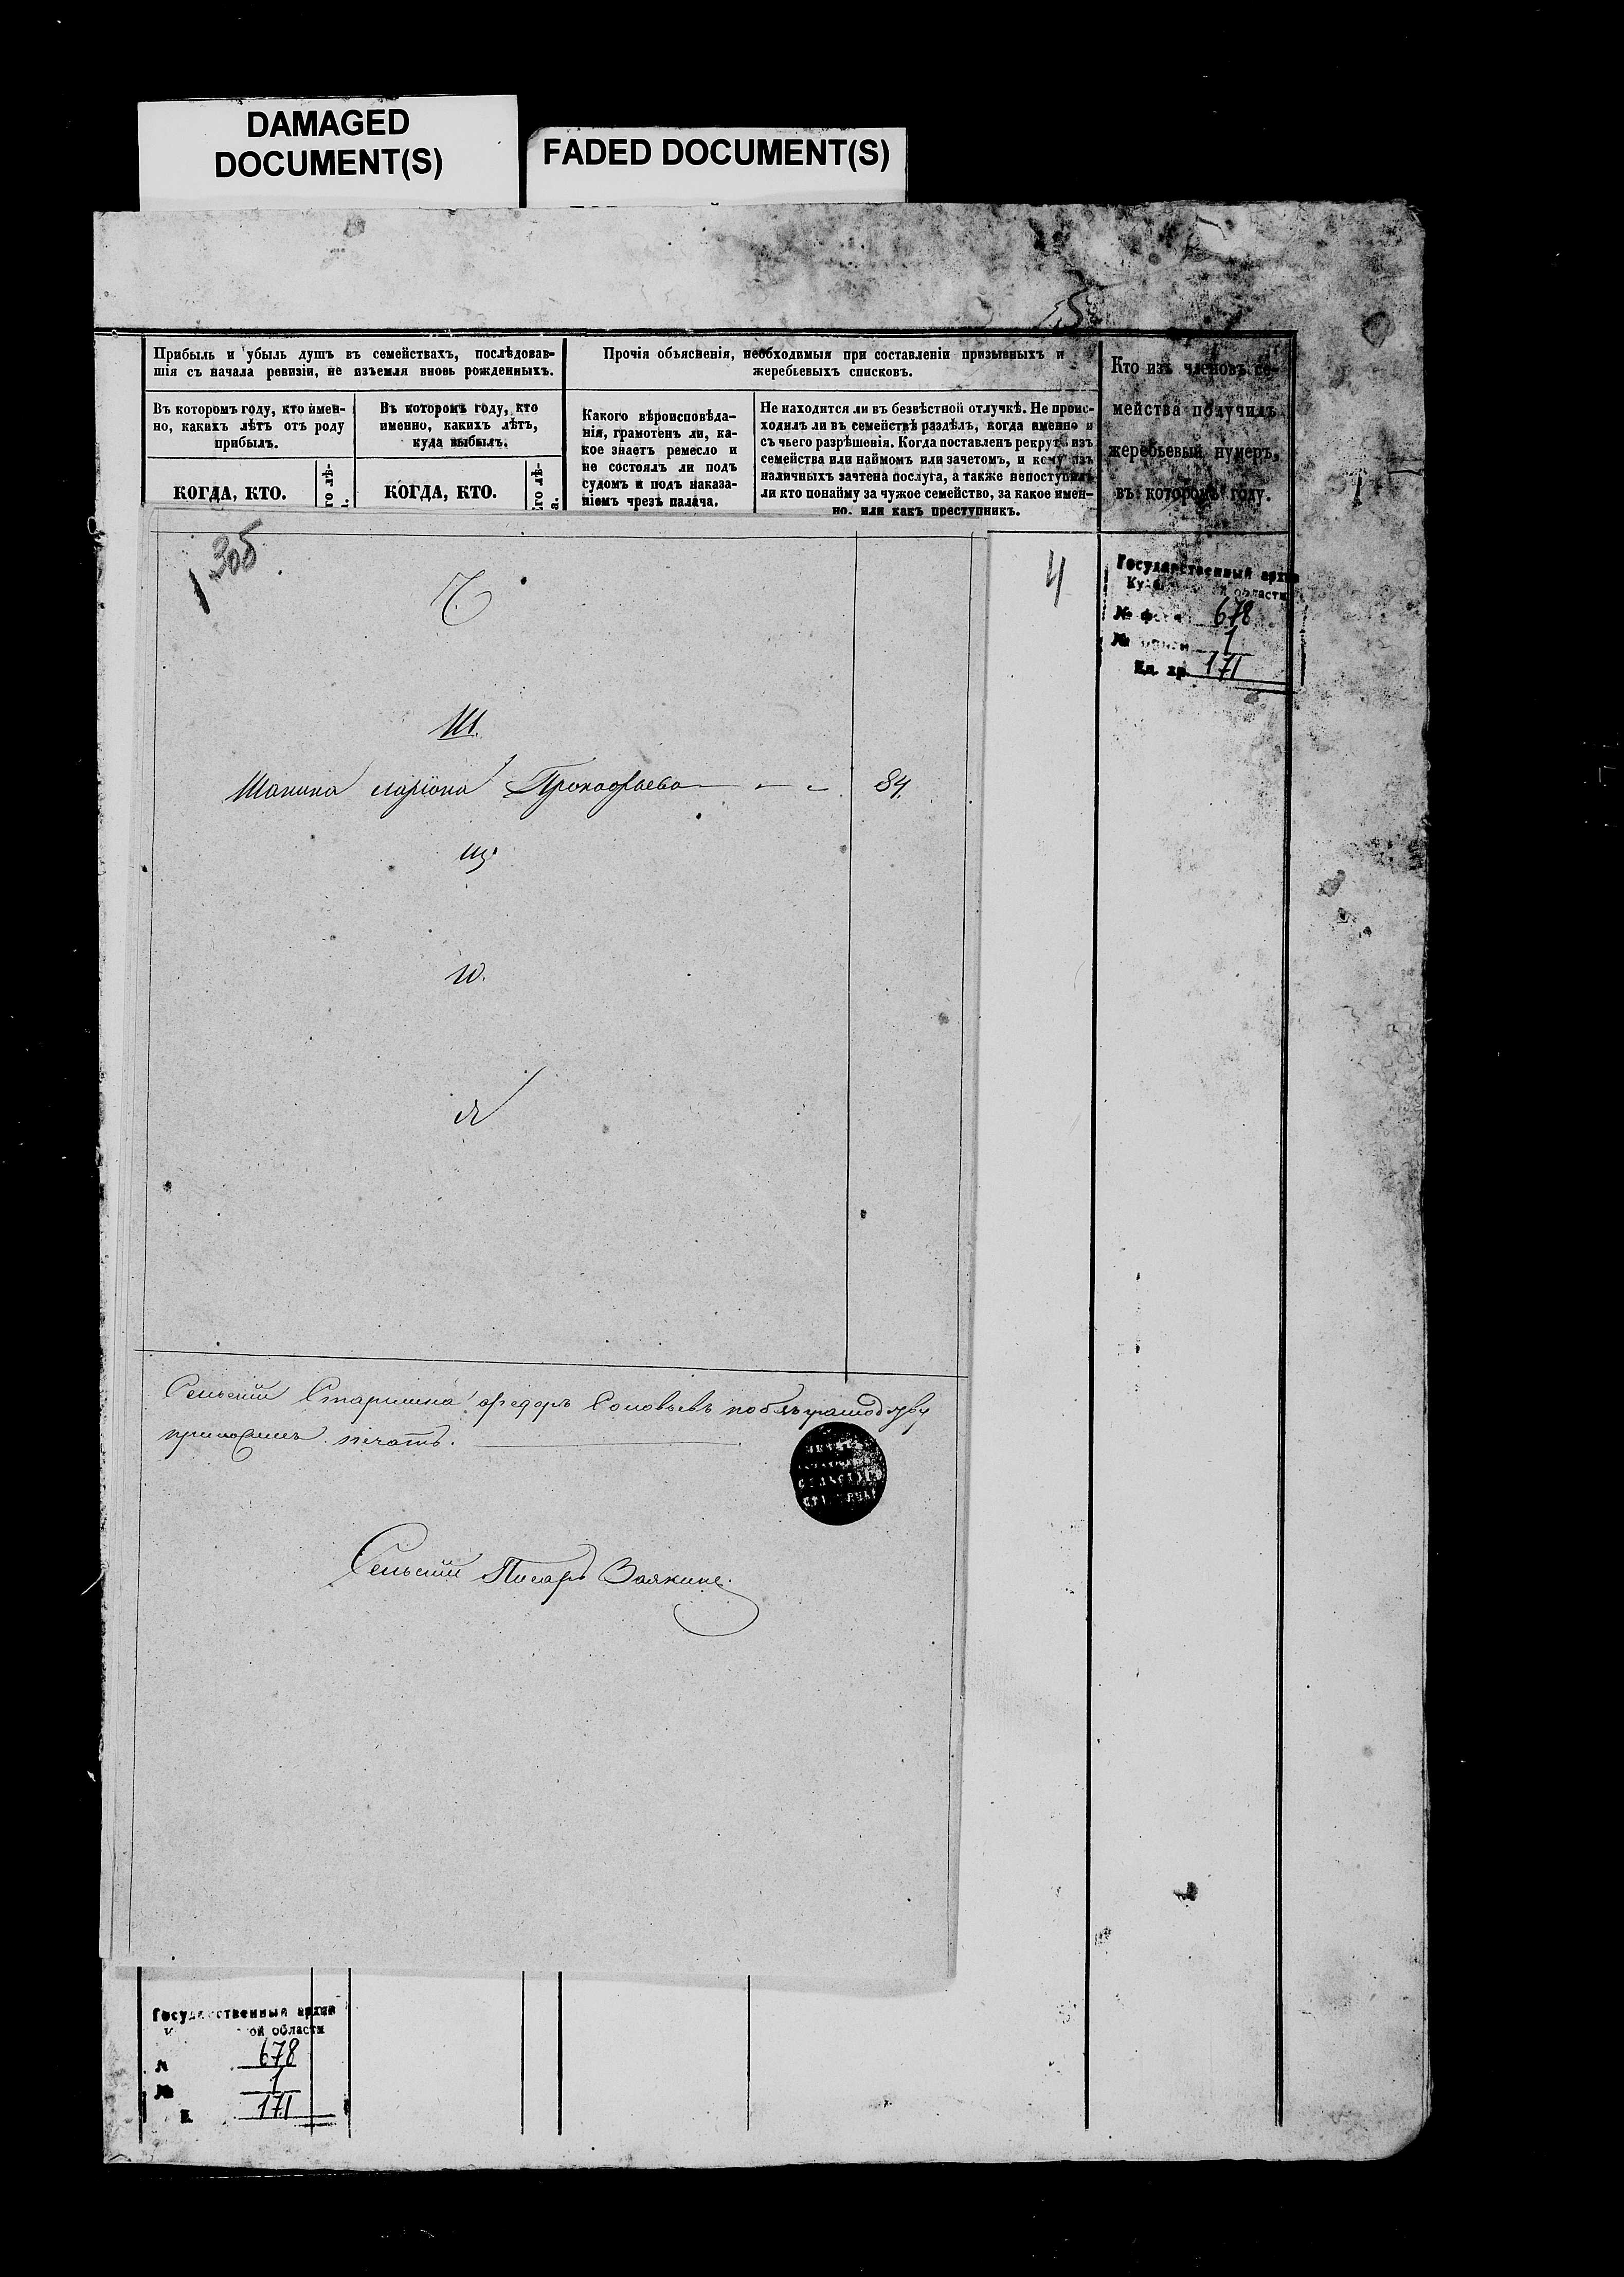 DAMAGED
DOCUMENT(S)
FADED DOCUMENT(S)
Прибыль и убыль душъ въ семействахъ, послѣдовав-
шія съ начала ревизіи, не изъемля вновь рожденныхъ.
Прочія объясненія, необходимыя при составленіи призывныхъ и
жеребьевыхъ списковъ.
Кто изъ членовъ се-
мейства получилъ
жеребьевый нумеръ,
въ которомъ году.
Въ которомъ году, кто имен-
но, какихъ лѣтъ отъ роду
прибылъ.
Въ которомъ году, кто
именно, какихъ лѣтъ,
куда выбылъ.
Какого вѣроисповѣда-
нія, грамотенъ ли, ка-
кое знаетъ ремесло и
не состоялъ ли подъ
судомъ и подъ наказа-
ніемъ чрезъ палача.
Не находится ли въ безвѣстной отлучкѣ. Не проис-
ходилъ ли въ семействѣ раздѣлъ, когда именно и
съ чьего разрѣшенія. Когда поставленъ рекрутъ изъ
семейства или наймомъ или зачетомъ, и кому изъ
наличныхъ зачтена послуга, а также непоступилъ
ли кто понайму за чужое семейство, за какое имен-
но, или какъ преступникъ.
КОГДА, КТО.
го лѣ-
КОГДА, КТО.
го лѣ-
а.
305
Ч.
4
Государственный архив
области
№ фонда 678
№ описи 1
Ед. хр. 171
Ш.
Шанина Ларіона Прокофьева 84.
Щ.
Ю.
Я
Сельский Старшина Федоръ Соловьевъ
печать.
Сельский Писарь Заякинъ.
Государственный архив
ой области
№ 678
№ 1
171